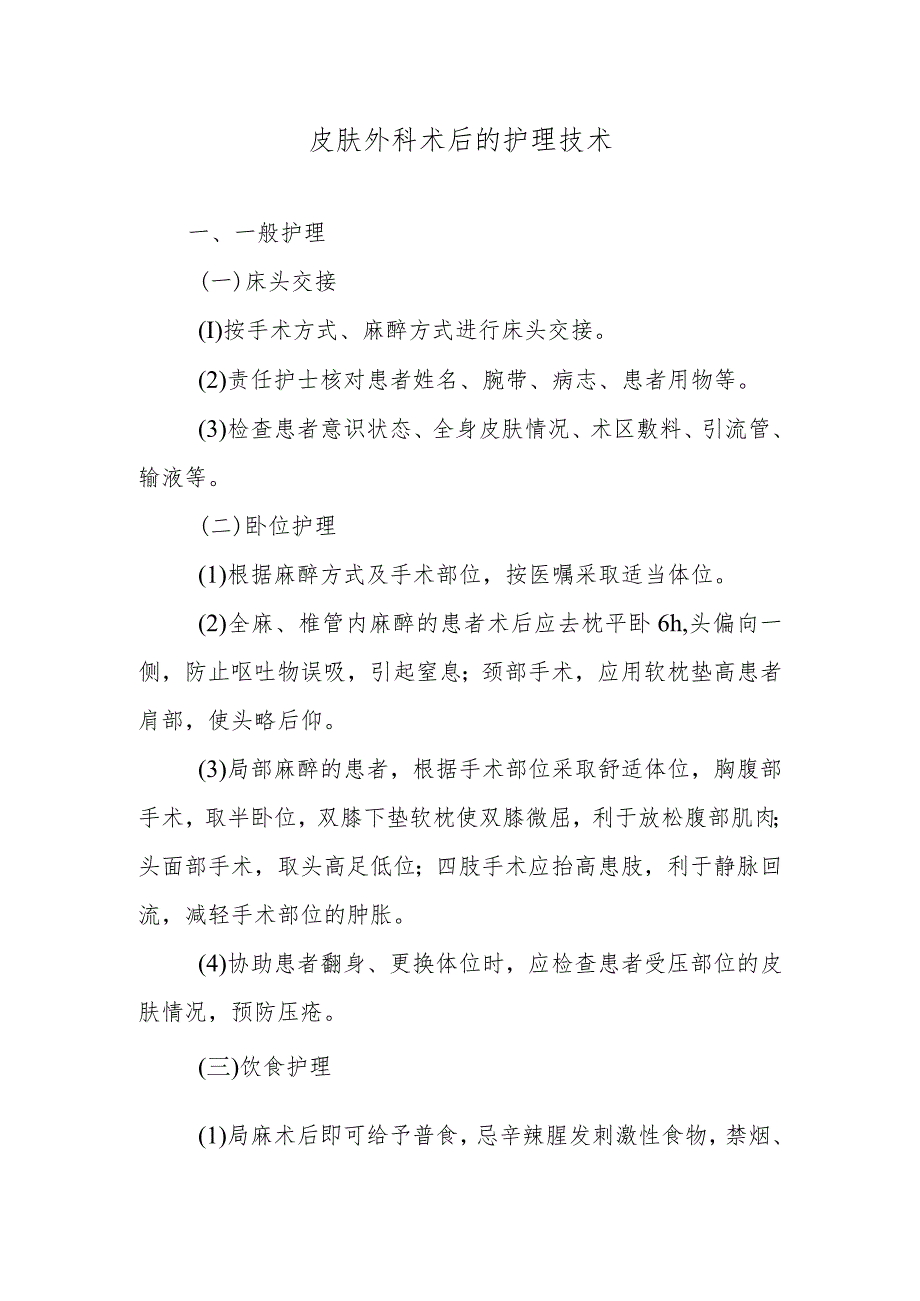 皮肤外科术后的护理技术
一、一般护理
(一)床头交接
(I)按手术方式、麻醉方式进行床头交接。
(2)责任护士核对患者姓名、腕带、病志、患者用物等。
(3)检查患者意识状态、全身皮肤情况、术区敷料、引流管、
输液等。
(二)卧位护理
(1)根据麻醉方式及手术部位，按医嘱采取适当体位。
(2)全麻、椎管内麻醉的患者术后应去枕平卧6h,头偏向一
侧，防止呕吐物误吸，引起窒息；颈部手术，应用软枕垫高患者
肩部，使头略后仰。
(3)局部麻醉的患者，根据手术部位采取舒适体位，胸腹部
手术，取半卧位，双膝下垫软枕使双膝微屈，利于放松腹部肌肉；
头面部手术，取头高足低位；四肢手术应抬高患肢，利于静脉回
流，减轻手术部位的肿胀。
(4)协助患者翻身、更换体位时，应检查患者受压部位的皮
肤情况，预防压疮。
(三)饮食护理
(1)局麻术后即可给予普食，忌辛辣腥发刺激性食物，禁烟、